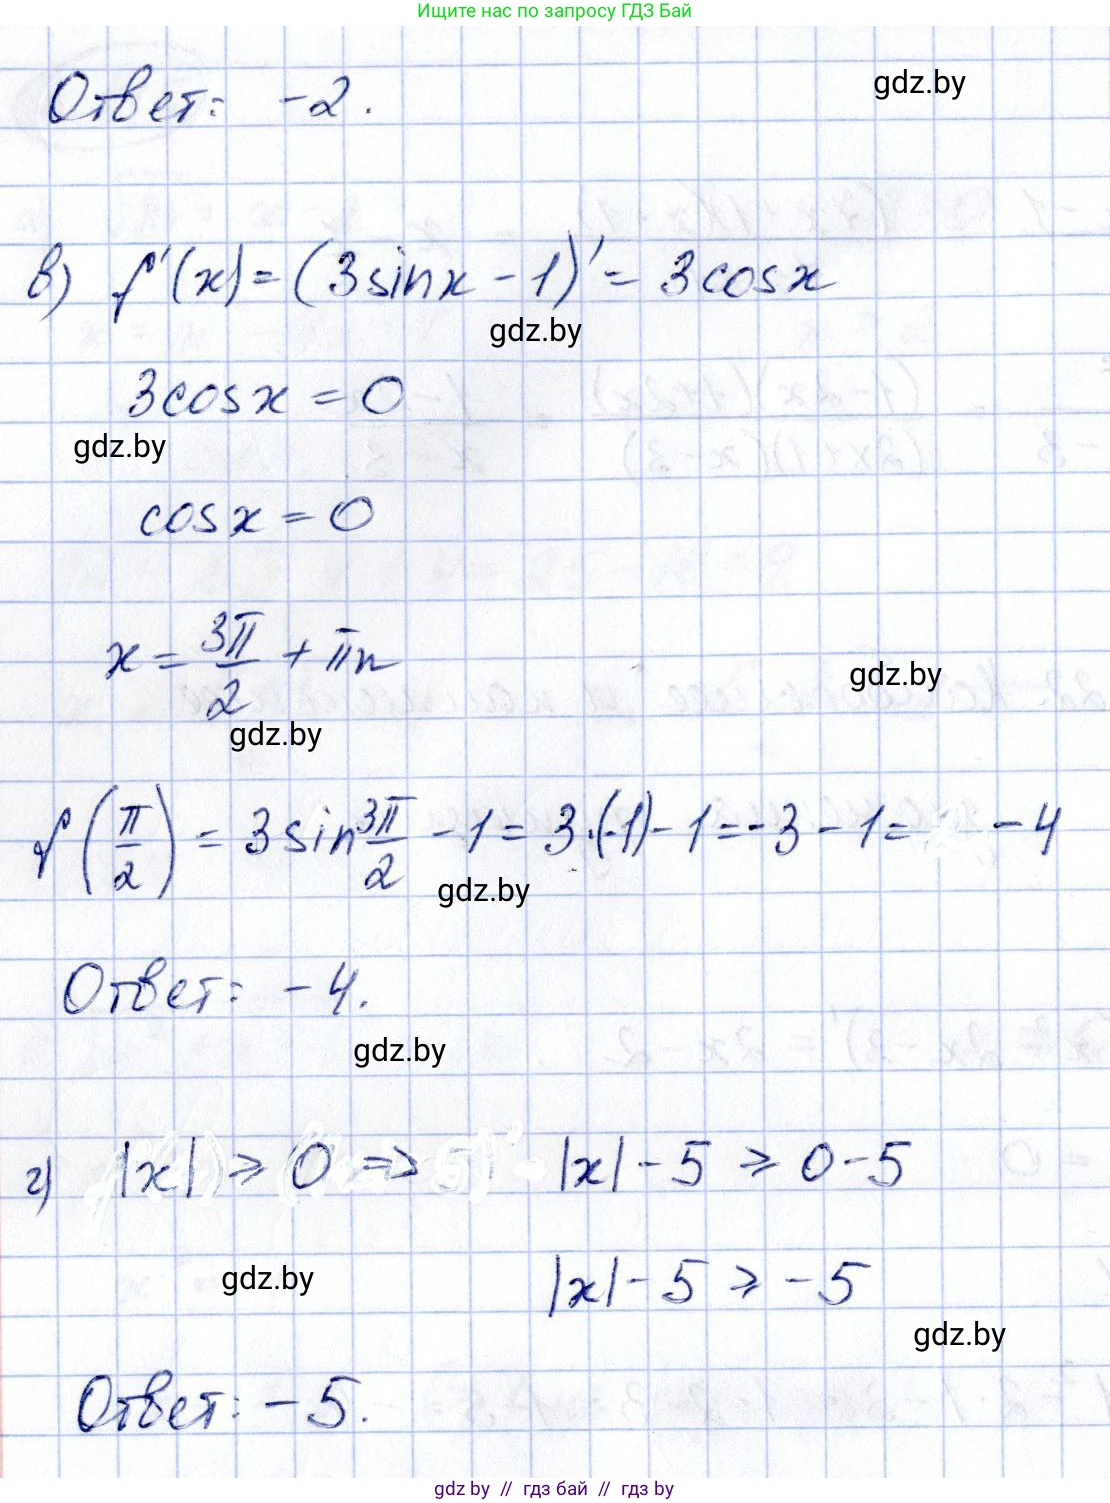 Ищите нас по запросу ГДЗ Бай
Ответ: -2.
gdz.by
в) f'(x) = (3sinx - 1)' = 3cosx
gdz.by
3cosx = 0
gdz.by
cosx = 0
x = 3π/2 + πn
gdz.by
gdz.by
f(π/2) = 3sin 3π/2 - 1 = 3·(-1) - 1 = -3 - 1 = -4
gdz.by
Ответ: -4.
gdz.by
г) |x| ⩾ 0 => |x| - 5 ⩾ 0 - 5
gdz.by
|x| - 5 ⩾ -5
gdz.by
Ответ: -5.
gdz.by // гдз бай // гдз by